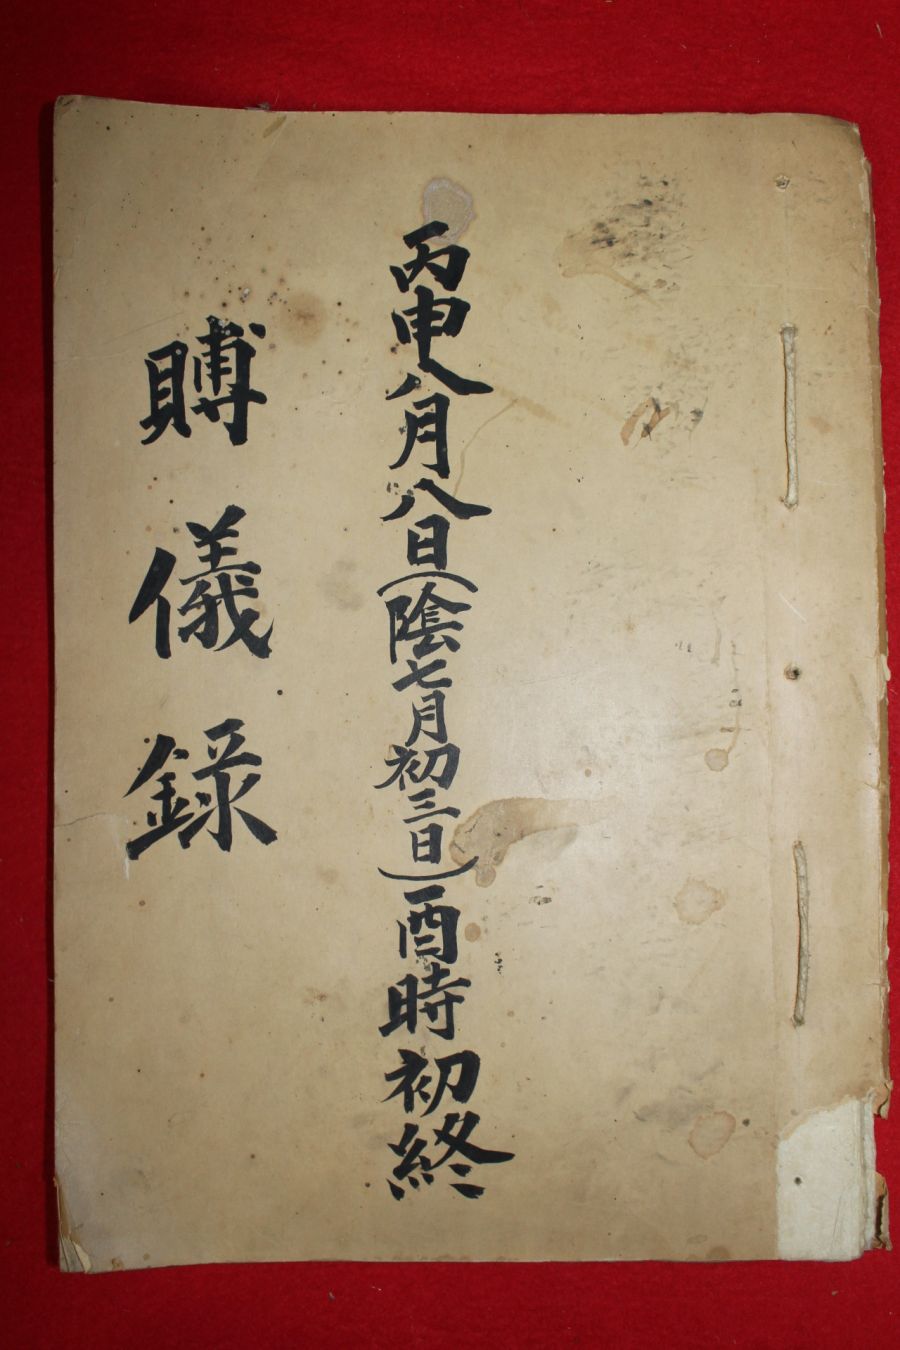 丙申八月八日(陰七月初三日)酉時初終
賻儀録